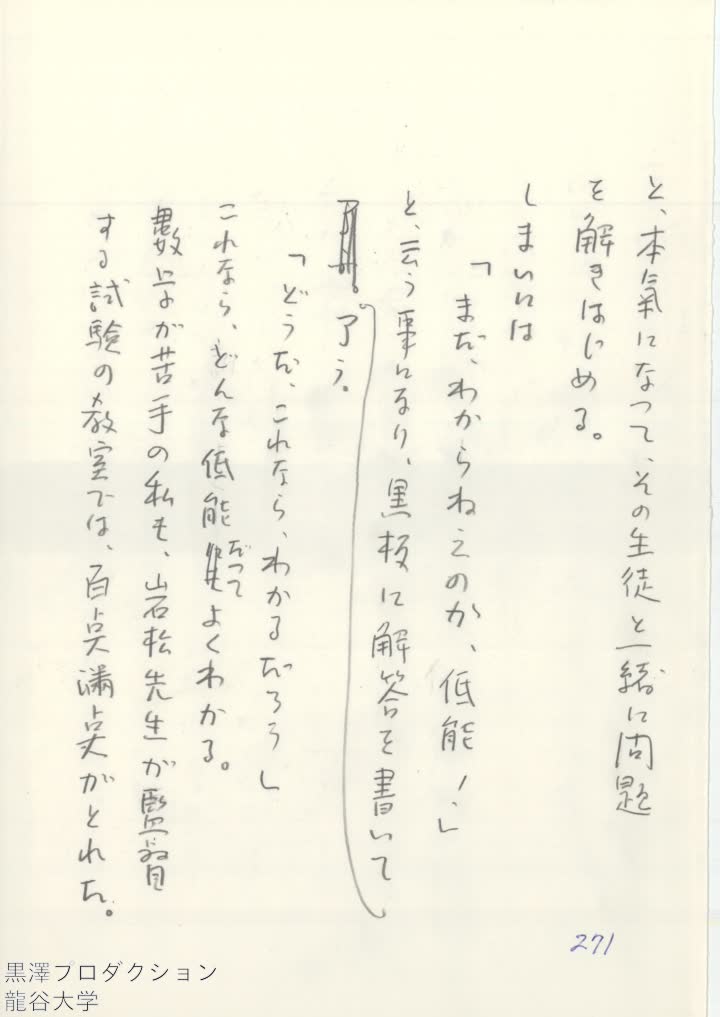 と、本氣になつて、その生徒と一緒に問題
を解きはじめる。
しまいには
「まだ、わからねえのか、低能！」
と、云う事になり、黒板に解答を書いて、
了う。
「どうだ、これなら、わかるだろう」
これなら、どんな低能だつてよくわかる。
数学が苦手の私も、岩松先生が監督
する試験の教室では、百点満点がとれた。
271
黒澤プロダクション
龍谷大学